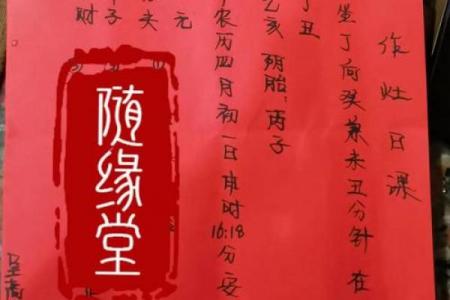 作灶日课
坐丁向癸兼未丑分针在
丁丑
乙亥 阴胎:丙子
农历四月初一日申时16:18分安
元
头
财 子
随缘堂